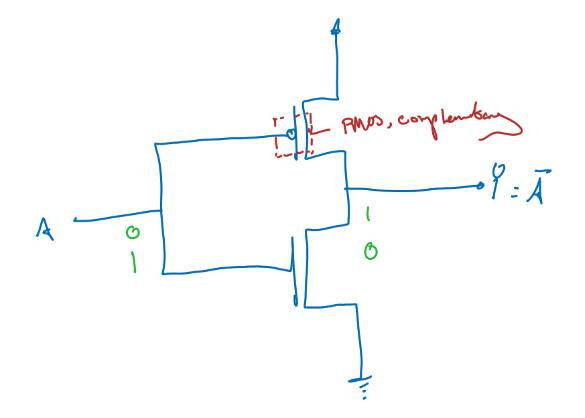 PMOS, complementary
Y = Ā
A
0
1
1
0